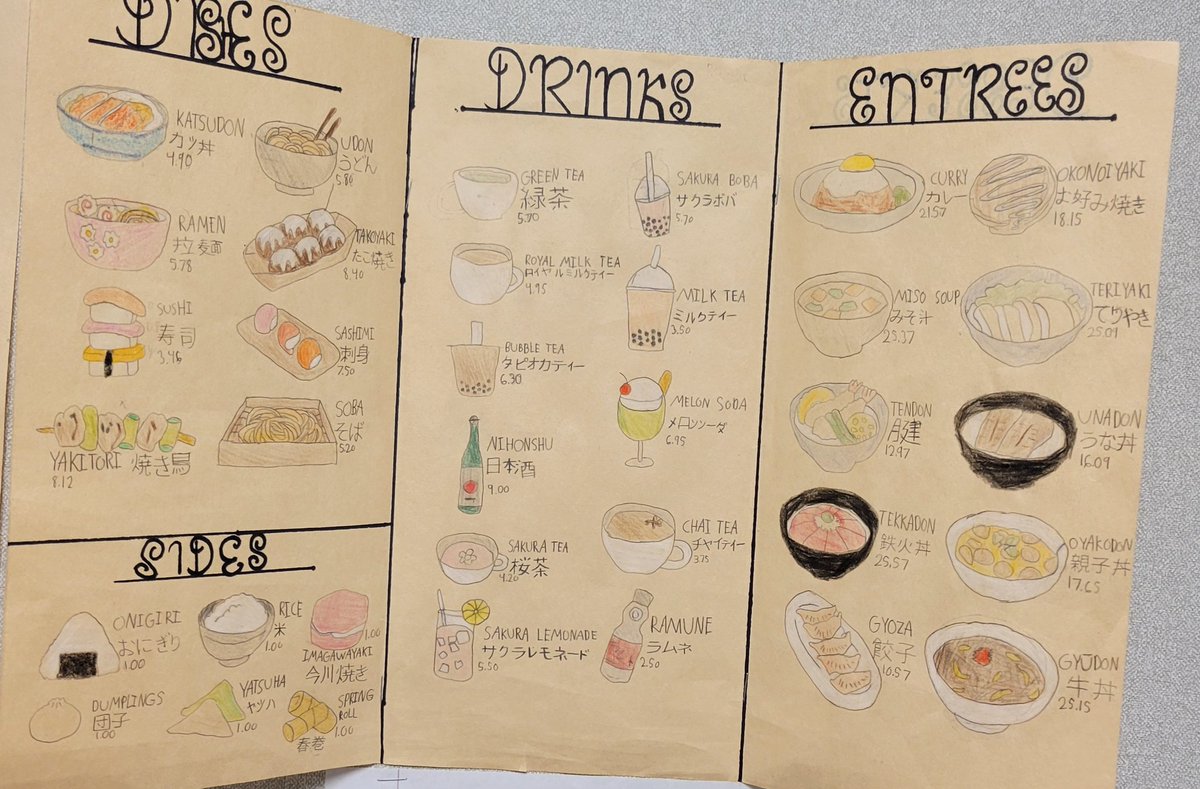 DISHES
KATSUDON
カツ丼
4.90
UDON
うどん
5.80
RAMEN
拉麺
5.78
TAKOYAKI
たこ焼き
8.40
SUSHI
寿司
3.46
SASHIMI
刺身
7.50
YAKITORI 焼き鳥
8.12
SOBA
そば
5.20
SIDES
ONIGIRI
おにぎり
1.00
RICE
米
1.00
1.00
IMAGAWAYAKI
今川焼き
DUMPLINGS
団子
1.00
YATSUHA
ヤツハ
1.00
SPRING
ROLL
1.00
春巻
DRINKS
GREEN TEA
緑茶
5.70
SAKURA BOBA
サクラボバ
5.70
ROYAL MILK TEA
ロイヤルミルクティー
4.95
MILK TEA
ミルクティー
3.50
BUBBLE TEA
タピオカティー
6.30
MELON SODA
メロンソーダ
6.95
NIHONSHU
日本酒
9.00
CHAI TEA
チャイティー
3.75
SAKURA TEA
桜茶
4.20
SAKURA LEMONADE
サクラレモネード
5.50
RAMUNE
ラムネ
2.50
ENTREES
CURRY
カレー
21.57
OKONOIYAKI
お好み焼き
18.15
MISO SOUP
みそ汁
25.37
TERIYAKI
てりやき
25.09
TENDON
腱
12.97
UNADON
うな丼
16.09
TEKKADON
鉄火丼
25.57
OYAKODON
親子丼
17.65
GYOZA
餃子
16.57
GYŪDON
牛丼
25.15